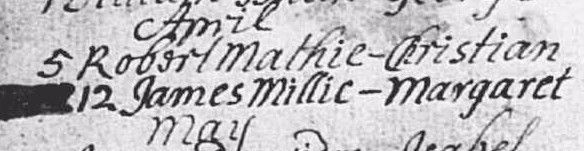 April
5 Robert Mathie - Christian
12 James Millic - Margaret
May
Isabel